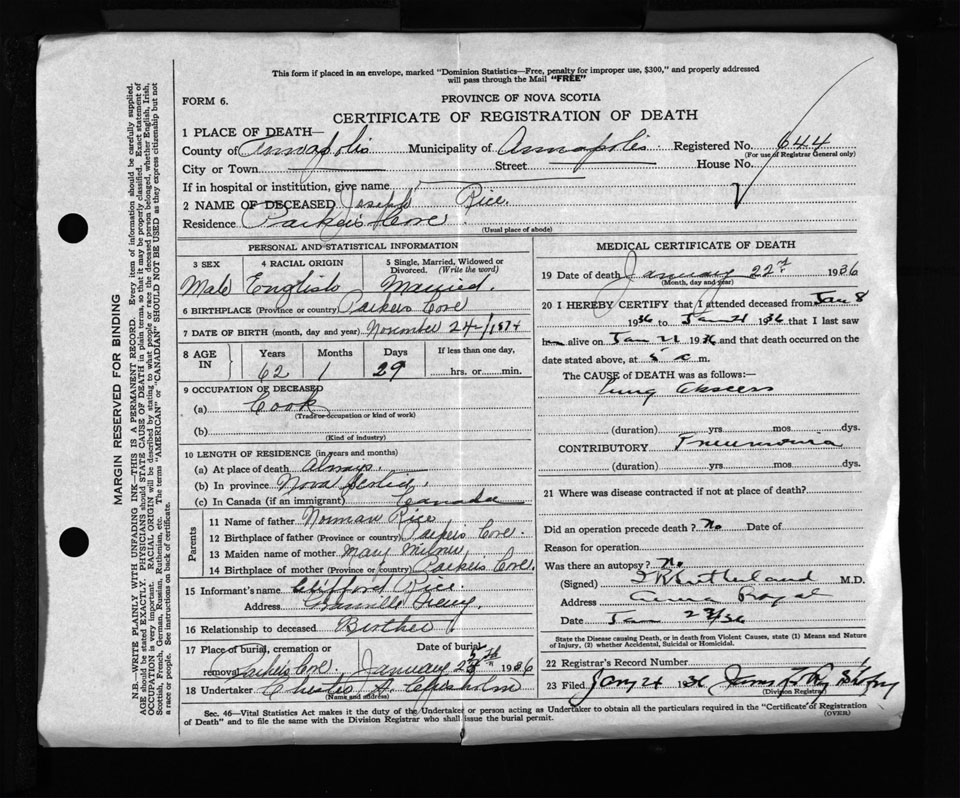 This form if placed in an envelope, marked "Dominion Statistics—Free, penalty for improper use, $300," and properly addressed
will pass through the Mail "FREE"
FORM 6.
PROVINCE OF NOVA SCOTIA
CERTIFICATE OF REGISTRATION OF DEATH
1 PLACE OF DEATH—
County of Annapolis Municipality of Annapolis Registered No. 644
(For use of Registrar General only)
City or Town Street House No.
If in hospital or institution, give name
2 NAME OF DECEASED Joseph Rice.
Residence Parker's Cove
(Usual place of abode)
PERSONAL AND STATISTICAL INFORMATION
3 SEX
4 RACIAL ORIGIN
5 Single, Married, Widowed or
Divorced. (Write the word)
Male English Married.
6 BIRTHPLACE (Province or country) Parkers Cove
7 DATE OF BIRTH (month, day and year) November 24 1874
8 AGE
IN
Years Months Days
62 1 29
If less than one day,
hrs. or min.
9 OCCUPATION OF DECEASED
(a) Cook
(Trade occupation or kind of work)
(b)
(Kind of industry)
10 LENGTH OF RESIDENCE (in years and months)
(a) At place of death Always.
(b) In province Nova Scotia,
(c) In Canada (if an immigrant) Canada
Parents
11 Name of father Norman Rice
12 Birthplace of father (Province or country) Parkers Cove.
13 Maiden name of mother Mary Milner
14 Birthplace of mother (Province or country) Parkers Cove.
15 Informant's name Clifford Rice.
Address Granville Ferry.
16 Relationship to deceased Brother
17 Place of burial, cremation or
removal Parkers Cove.
Date of burial
January 1936
18 Undertaker Chisholm
(Name and address)
MEDICAL CERTIFICATE OF DEATH
19 Date of death January 22nd 1936
(Month, day and year)
20 I HEREBY CERTIFY that I attended deceased from Jan 8
1936 to Jan 21 1936 that I last saw
him alive on Jan 21 1936 and that death occurred on the
date stated above, at 5 a m.
The CAUSE of DEATH was as follows:—
Lung Abscess
(duration) yrs. mos. dys.
CONTRIBUTORY Pneumonia
(duration) yrs. mos. dys.
21 Where was disease contracted if not at place of death?
Did an operation precede death? No Date of
Reason for operation
Was there an autopsy? No.
(Signed) M.D.
Address Anna Royal
Date Jan 23/36
State the Disease causing Death, or in death from Violent Causes, state (1) Means and Nature
of Injury, (2) whether Accidental, Suicidal or Homicidal.
22 Registrar's Record Number
23 Filed Jany 24 1936 James
(Division Registrar)
Sec. 46—Vital Statistics Act makes it the duty of the Undertaker or person acting as Undertaker to obtain all the particulars required in the "Certificate of Registration
of Death" and to file the same with the Division Registrar who shall issue the burial permit.
(OVER)
MARGIN RESERVED FOR BINDING
N.B.—WRITE PLAINLY WITH UNFADING INK—THIS IS A PERMANENT RECORD. Every item of information should be carefully supplied.
AGE should be stated EXACTLY. PHYSICIANS should STATE CAUSE OF DEATH in plain terms, so that it may be properly classified. Exact statement of
OCCUPATION is very important. RACIAL ORIGIN will be described by stating to what people or race the deceased person belonged, whether English, Irish,
Scottish, French, German, Russian, Ruthenian, etc. The terms "AMERICAN" or "CANADIAN" SHOULD NOT BE USED as they express citizenship but not
a race or people. See instructions on back of certificate.